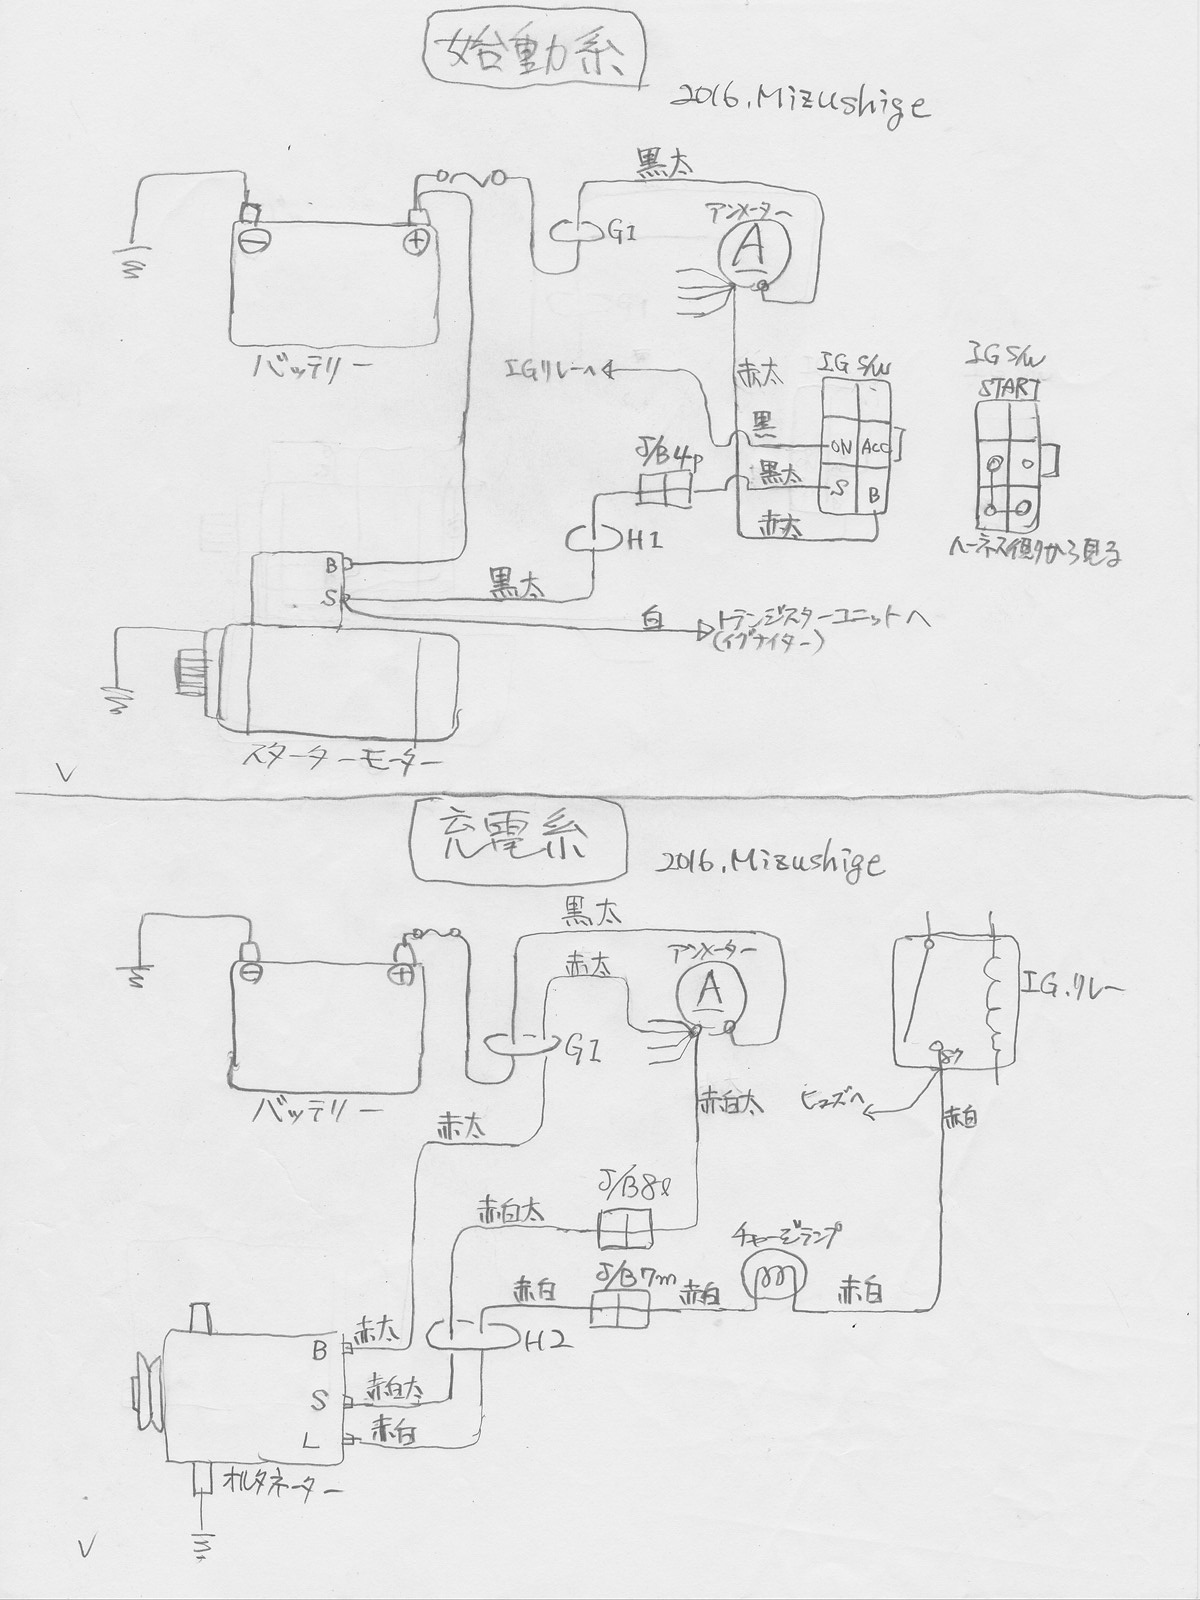 始動系
2016.Mizushige
黒太
アンメーター
A
G1
⊖
⊕
バッテリー
IGリレーへ
赤太
IG S/W
IG S/W
START
黒
ON
ACC
J/B4p
黒太
S
B
H1
赤太
ハーネス側から見る
B
S
黒太
白
トランジスターユニットへ
(イグナイター)
スターターモーター
充電系
2016.Mizushige
黒太
赤太
アンメーター
A
G1
⊖
⊕
IG.リレー
87
バッテリー
赤太
赤白太
ヒューズへ
赤白
J/B8l
赤白太
チャージランプ
J/B7m
赤白
赤白
赤白
H2
赤太
B
S
赤白太
L
赤白
オルタネーター